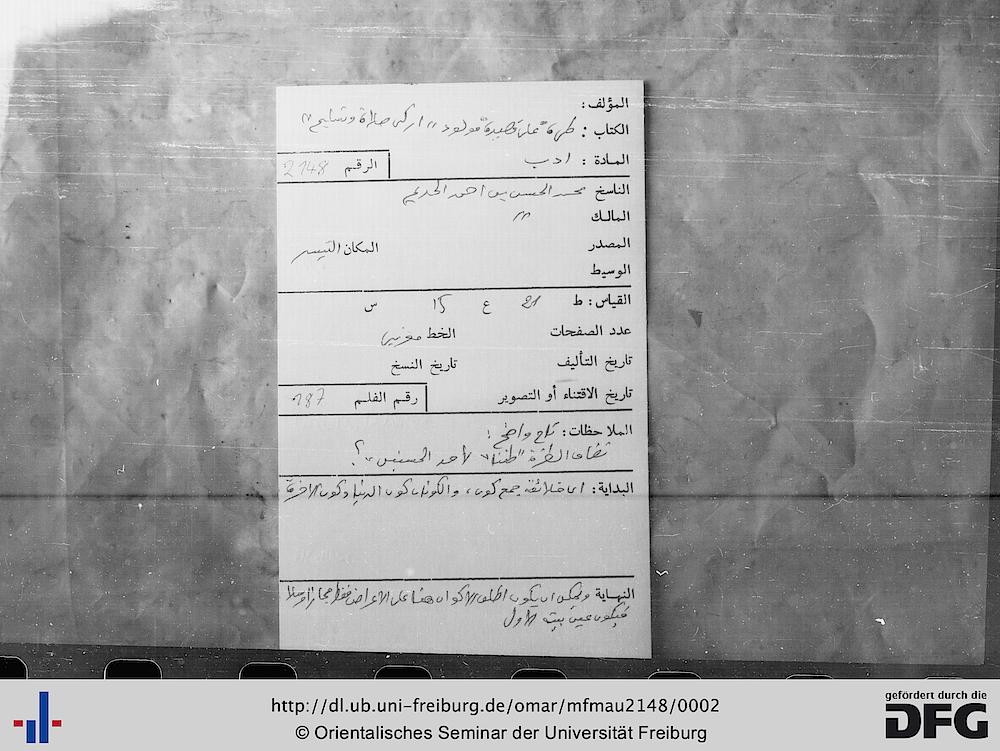 المؤلف :
الكتاب : طرة "على قصيدة" مولود "ازكى صلاة وتسليم"
المادة : ادب
الرقم 2148
الناسخ محمد الحسن بن احمد الخديم
المالك "
المصدر المكان التيسير
الوسيط
القياس : ط 21 ع 15 س
عدد الصفحات الخط مغربي
تاريخ التأليف تاريخ النسخ
تاريخ الاقتناء أو التصوير رقم الفلم 187
الملاحظات : تام واضح !
الطرة لأحد ؟
البداية : اى خلائقه جمع كون ، والكونان كون الدنيا وكون الاخرة
النهاية ويمكن ان يكون اطلق الاكوان هنا على الاعراض فقط مجازا مرسلا
فيكون عين بيته الاول
http://dl.ub.uni-freiburg.de/omar/mfmau2148/0002
© Orientalisches Seminar der Universität Freiburg
gefördert durch die
DFG